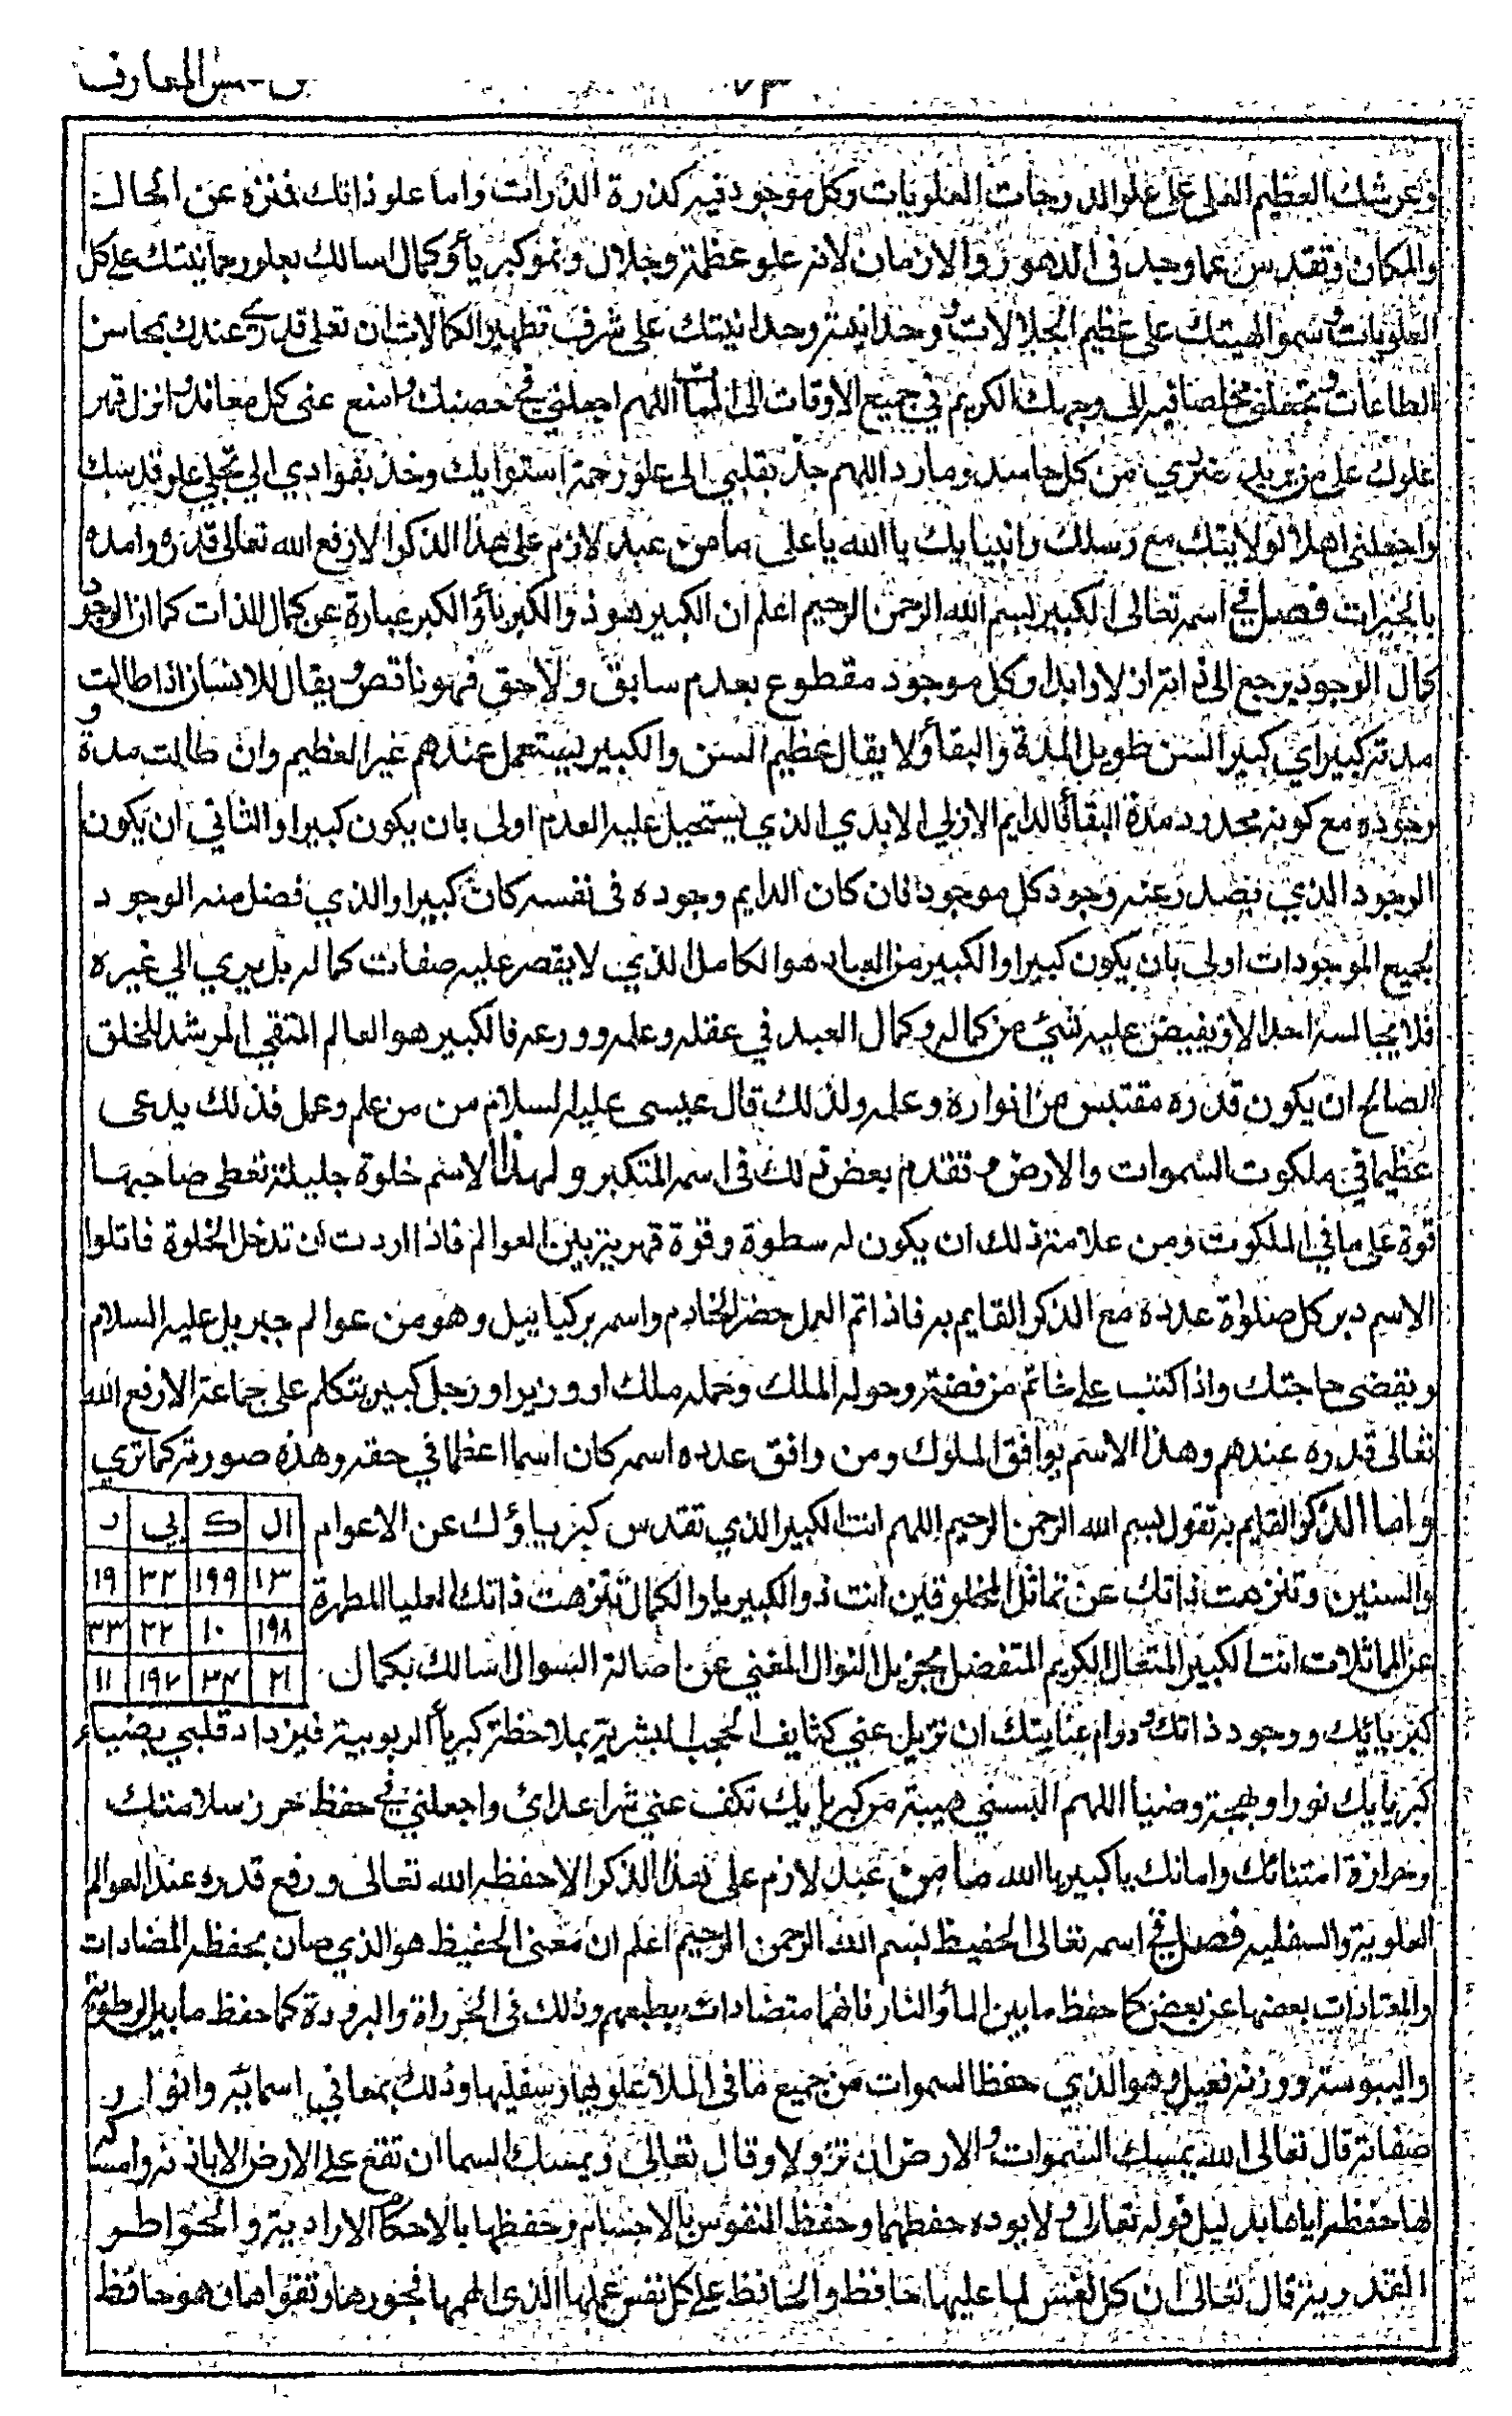 شمس المعارف
٧٣
وعرشك العظيم العلي على علو الدرجات العلويات وكل موجود فيه كذرة الذرات واما علو ذاتك فمنزه عن المحالـ
والمكان وتقدس عما وجد في الدهور والازمان لانه علو عظمة وجلال ونمو كبرياء وكمال اسالك بعلو رحمانيتك على كل
العلويات وسمو الهيتك على عظيم الجلالات ووحدانية وحدانيتك على شرف تطهير الكمالات ان تعلي قدري عندك بمحاسن
الطاعات وتجعلني مخلصا فيه الى وجهك الكريم في جميع الاوقات الى الممات اللهم اجعلني في حصنك وامنع عني كل معاند وانزل قهر
علوك على من يريد ضري من كل حاسد ومارد اللهم جد بقلبي الى علو رحمة استوايك وخذ بفوادي الي تجلي علو قدسك
واجعلني اهلا لولايتك مع رسلك وانبيايك يا الله يا على ما من عبد لازم على هذا الذكر الا رفع الله تعالى قدره وامده
بالخيرات فصل في اسمه تعالى الكبير بسم الله الرحمن الرحيم اعلم ان الكبير هو ذو الكبرياء والكبر عبارة عن كمال الذات كما ان الوجود
كمال الوجود يرجع الى ذاته ازلا وابدا وكل موجود مقطوع بعدم سابق ولاحق فهو ناقص ويقال للانسان اذا طالت
مدته كبير اي كبير السن طويل المدة والبقاء ولا يقال عظيم السن والكبير يستعمل عندهم غير العظيم وان طالت مدة و
وجوده مع كونه محدود مدة البقاء فالدايم الازلي الابدي الذي يستحيل عليه العدم اولى بان يكون كبيرا والثاني ان يكون
الوجود الذي يصدر عنه وجود كل موجود فان كان الدايم وجوده في نفسه كان كبيرا والذي فضل منه الوجود
بجميع الموجودات اولى بان يكون كبيرا والكبير من العباد هو الكامل الذي لا يقصر عليه صفات كماله بل يري الي غيره
فلا يجالسه احد الا ويفيض عليه شيء من كماله وكمال العبد في عقله وعلمه وورعه فالكبير هو العالم المتقي المرشد للخلق
الصالح ان يكون قدره مقتبس من انواره وعلمه ولذلك قال عيسى عليه السلام من من علم وعمل فذلك يدعى
عظيما في ملكوت السموات والارض وتقدم بعض ذلك في اسمه المتكبر ولهذا الاسم خلوة جليلة تعطي صاحبها
قوة على ما في الملكوت ومن علامة ذلك ان يكون له سطوة وقوة قهرية بين العوالم فاذا اردت ان تدخل الخلوة فاتلوا
الاسم دبر كل صلواة عدده مع الذكر القايم به فاذا تم العمل حضر الخادم واسمه بركياييل وهو من عوالم جبريل عليه السلام
ويقضى حاجتك واذا كتب على خاتم من فضة وحوله الملك وحمله ملك او وزير او رجل كبير يتكلم على جماعة الا رفع الله
تعالى قدره عندهم وهذا الاسم يوافق الملوك ومن وافق عدده اسمه كان اسما اعظما في حقه وهذه صورته كما تري
واما الذكر القايم به تقول بسم الله الرحمن الرحيم اللهم انت الكبير الذي تقدس كبرياؤك عن الاعوام
والسنين وتنزهت ذاتك عن تماثل المخلوقين انت ذو الكبرياء والكمال تنزهت ذاتك العليا المطهرة
عن المماثلات انت الكبير المتعال الكريم المتفضل بجزيل النوال المغني عن اصالة السوال اسالك بكمال
ال ك بي ر
١٣ ١٩٩ ٣٢ ١٩
١٩٨ ١٠ ٢٢ ٣٣
٢١ ٣٤ ١٩٧ ١١
كبريايك ووجود ذاتك ودوام عنايتك ان تزيل عني كثايف الحجب البشرية بملاحظة كبرياء الربوبية فيزداد قلبي بضياء
كبريايك نورا وبهجة وضيا اللهم البسني هيبة من كبريايك تكف عني شر اعدائ واجعلني في حفظ حرز سلامتك
وحرازة امتنائك وامانك يا كبير يا الله ما من عبد لازم على هذا الذكر الا حفظه الله تعالى ورفع قدره عند العوالم
العلوية والسفليه فصل في اسمه تعالى الحفيظ بسم الله الرحمن الرحيم اعلم ان معنى الحفيظ هو الذي صان بحفظه المضادات
والمعتادات بعضها عن بعض كما حفظ ما بين الماء والنار فانهما متضادات بطبعهم وذلك في الحرراة والبرودة كما حفظ ما بين الرطوبة
واليبوسة ووزنه فعيل وهو الذي حفظ السموات من جميع ما في الملا علويها وسفليها وذلك بمعاني اسمائه وانوار
صفاته قال تعالى الله يمسك السموات والارض ان تزولا وقال تعالى ويمسك السما ان تقع على الارض الا باذنه وامساكه
لها حفظه اياها بدليل قوله تعالى ولا يوده حفظهما وحفظ النفوس بالاجسام وحفظها بالاحكام الارادية والخواطر
القدرية قال تعالى ان كل نفس لما عليها حافظ والحافظ على كل نفس عملها الذي الهمها فجورها وتقواها فهو حافظ